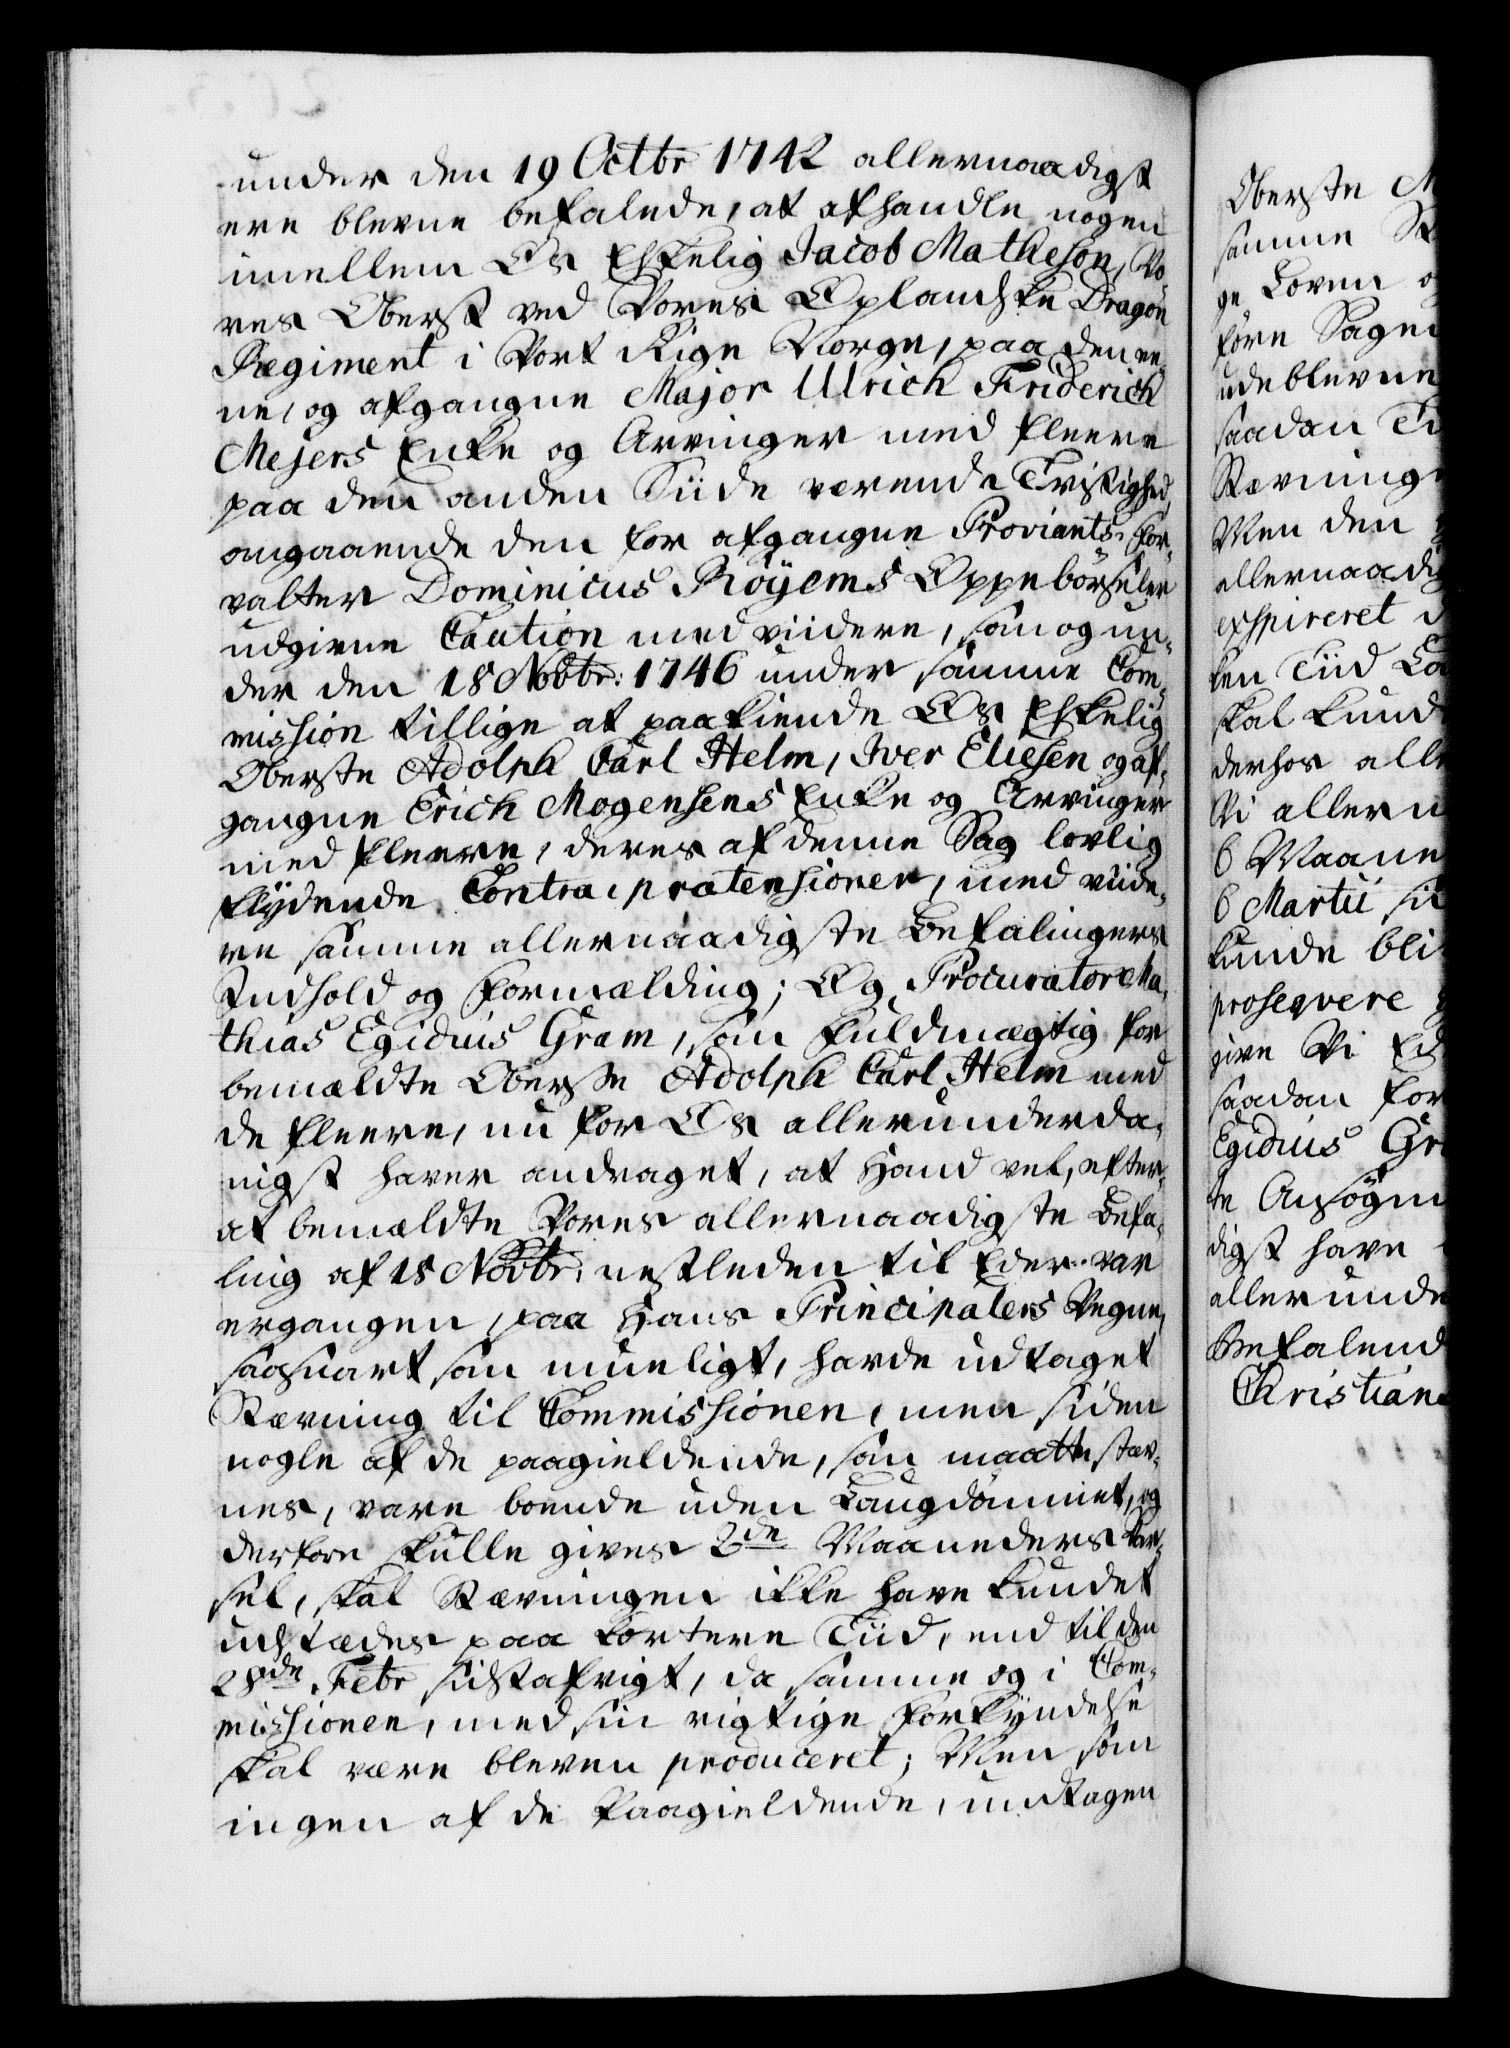 under den 19 Octbr 1742 allernaadigst
ere blevne befalede, at afhandle nogen
imellem Os Elskelig Jacob Matheson, Vo¬
res Oberst ved Vores Oplandske Dragon
Regiment i Vort Rige Norge, paa den ee¬
ne, og afgangne Major Ulrich Friderich
Mejers Enke og Arvinger med fleere
paa den anden Siide værende Tvistighed,
angaaende den for afgangne Proviants-For¬
valter Dominicus Röyems Oppebörseler
udgivne Caution med viidere, som og un¬
der den 18 Novbr: 1746 under samme Com¬
mission tillige at paakiende Os Elskelig
Oberste Adolph Carl Helm, Iver Eliesen og af¬
gangne Erich Mogensens Enke og Arvinger
med fleere, deres af denne Sag lovlig
flydende Contra-prætensioner, med viide¬
re samme allernaadigste Befalingers
Indhold og Formælding; Og Procurator Ma¬
thias Egidius Gram, som Fuldmægtig for
bemældte Oberste Adolph Carl Helm med
de fleere, nu for Os allerunderda¬
nigst haver andraget, at Hand vel, efter¬
at bemældte Vores allernaadigste Befa¬
ling af 18 Novbr: nestleden til Eder var
ergangen, paa Hans Principalers Vegne,
saasnart som mueligt, havde udtaget
Stævning til Commissionen, men siden
nogle af de paagieldende, som maatte stæv¬
nes, vare boende uden Laugdömmet, og
derfore skulle gives 2de Maaneders Var¬
sel, skal Stævningen ikke have kundet
udstædes paa kortere Tiid, end til den
28de Febr sidstafvigt, da samme og i Com¬
missionen, med sin rigtige Forkyndelse
skal være bleven produceret; Men som
ingen af de Paagieldende, undtagen
Oberste M
samme St
ge Loven o
före Sagen
udeblevne
saadan Ti
Stævninge
Men den
allernaadig
exspireret d
ken Tiid Co
skal kund
derhos alle
Vi allern
6 Maane
6 Martii si
kunde bli
proseqvere
give Vi Ed
saadan for
Egidius Gr
te Ansögn
digst have
allerunde
Befalend
Christian